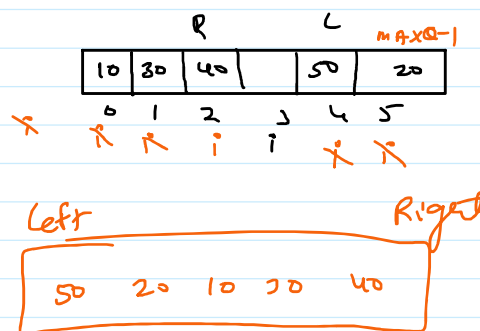 R L
MAXQ-1
10 30 40 50 20
0 1 2 3 4 5
i i i i i i
Left Right
50 20 10 30 40